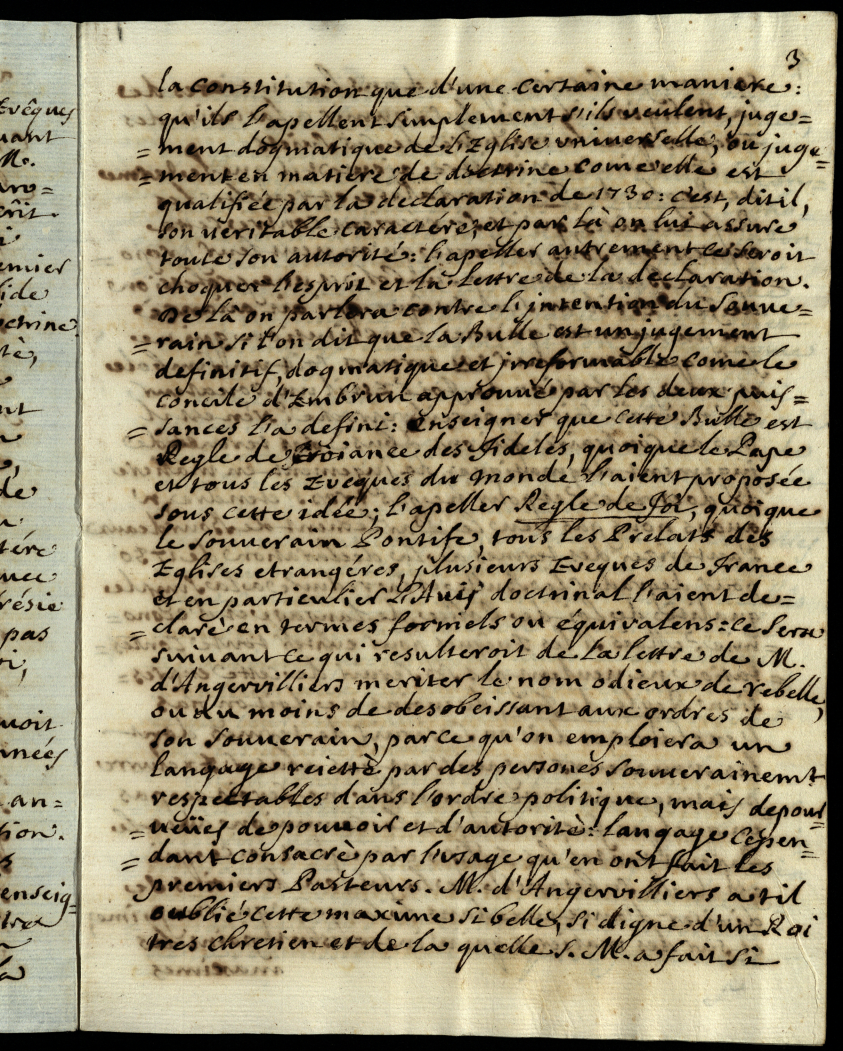 3
la constitution que d'une certaine maniere:
qu'ils l'apellent simplement s'ils veulent, juge=
=ment dogmatique de l'Eglise universelle, ou juge=
=ment en matiere de doctrine come elle est
qualifiée par la declaration de 1730: c'est, dit il,
son veritable caractére, et par là on lui assure
toute son autorité: l'apeller autrement ce seroit
choquer l'esprit et la lettre de la declaration.
De là on parlera contre l'intention du Souve=
=rain si l'on dit que la Bulle est un jugement
definitif, dogmatique et irreformable come le
concile d'Embrun approuvé par les deux puis=
=sances l'a defini: enseigner que cette Bulle est
Regle de Croiance des fideles, quoique le Pape
et tous les Eveques du monde l'aient proposée
sous cette idée; l'apeller Regle de foi, quoique
le Souverain Pontife, tous les Prelats des
Eglises etrangéres, plusieurs Eveques de France
et en particulier l'Avis doctrinal l'aient de=
=claré en termes formels ou équivalens: ce sera
suivant ce qui resulteroit de la lettre de M.
d'Angervilliers meriter le nom odieux de rebelle,
ou du moins de desobeissant aux ordres de
son Souverain, parce qu'on emploiera un
langage reietté par des persones souverainemt
respectables dans l'ordre politique, mais depour=
=veües de pouvoir et d'autorité: langage cepen=
=dant consacrè par l'usage qu'en ont fait les
premiers Pasteurs. M. d'Angervilliers a til
oublié cette maxime si belle, si digne d'un Roi
tres chretien et de la quelle S. M. a fait si
Evêques
vant
M.
crit.
emier
ide
ctrine
tè,
nt
de
tére
résie
pas
voit
nnées
an=
tion.
enseig=
la